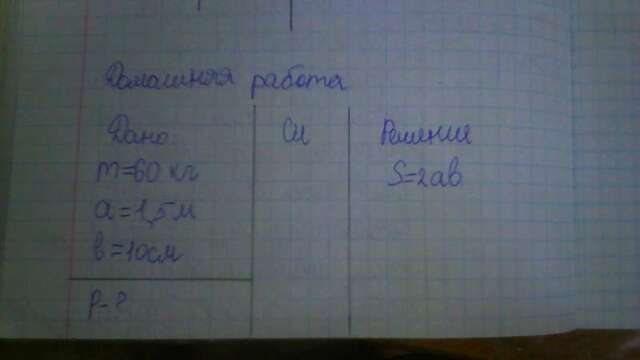 Домашняя работа
Дано:
m=60 кг
a=1,5м
b=10см
P-?
Си
Решение
S=2ab